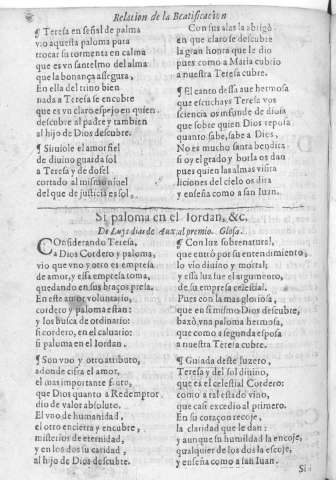 Relation de la Beatificacion
¶ Teresa en señal de palma
vio aquesta paloma para
trocar su tormenta en calma
que es vn santelmo del alma
que la bonança assegura,
En ella del trino bien
nada a Teresa se encubre
que es vn claro espejo en quien
descubre al padre y tambien
al hijo de Dios descubre.
¶ Siruiole el amor fiel
de diuino guarda sol
a Teresa y de dosel
cortado al mismo niuel
del que de justicia es sol,
Con sus alas la abrigò
en que claro se descubre
la gran honra que le dio
pues como a Maria cubrio
a nuestra Teresa cubre.
¶ El canto dessa aue hermosa
que escuchays Teresa vos
sciencia os infunde diuosa
que sobre quien Dios reposa
quanto sabe, sabe a Dios,
No es mucho santa bendita
si oy el grado y borla os dan
pues quien las almas visita
liciones del cielo os dita
y enseña como a san Iuan.
Si paloma en el Iordan, &c.
De Luys diaz de Aux, al premio. Glosa.
Considerando Teresa,
a Dios Cordero y paloma,
vio que vno y otro es empresa
de amor, y essa empresa toma,
quedando en sus braços presa.
En este amor voluntario,
cordero y paloma estan:
y los busca de ordinario:
si cordero, en el caluario:
si paloma en el Iordan.
¶ Son vno y otro atributo,
adonde cifra el amor,
el mas importante fruto,
que Dios quanto a Redemptor
dio de valor absoluto.
El vno de humanidad,
el otro encierra y encubre,
misterios de eternidad,
y en los dos su caridad,
al hijo de Dios descubre.
¶ Con luz sobrenatural,
que entrò por su entendimiento,
lo vio diuino y mortal,
y essa luz fue el argumento,
de su empresa celestial.
Pues con la mas gloriosa,
que en si mismo Dios descubre,
baxò vna paloma hermosa,
que como a segunda esposa
a nuestra Teresa cubre.
¶ Guiada deste luzero,
Teresa y del sol diuino,
que es el celestial Cordero:
como a tal estado vino,
que casi excedio al primero.
En su coraçon recoje,
la claridad que le dan:
y aunque su humildad la encoje,
qualquier de los dos la escoje,
y enseña como a san Iuan.
Si